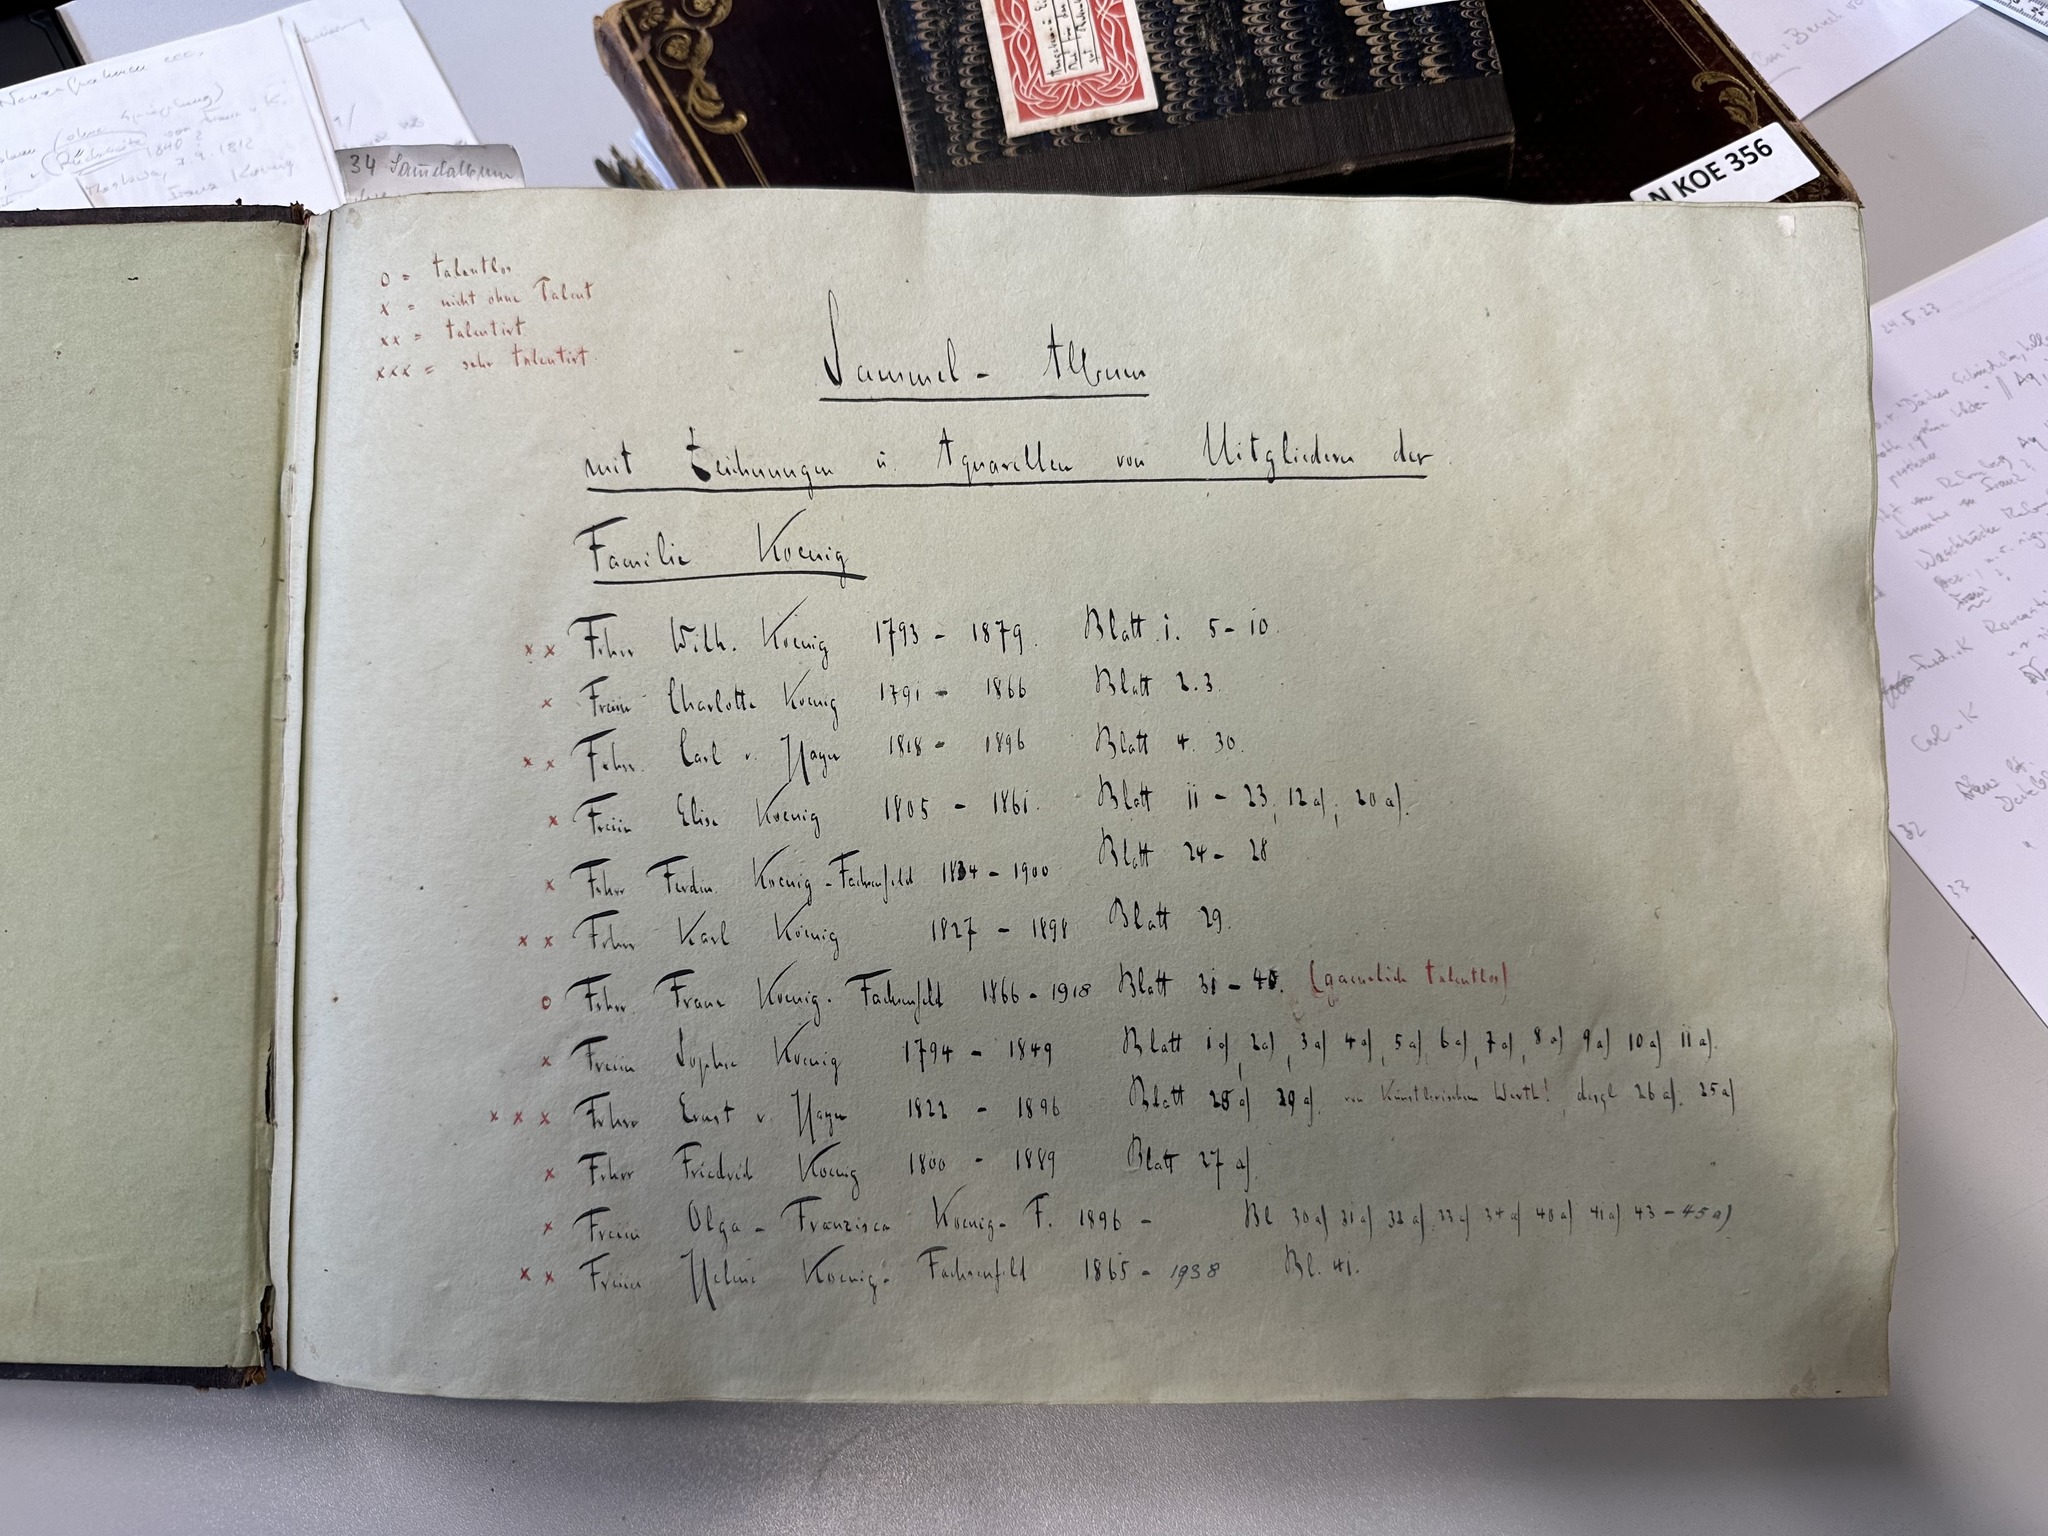 34 Sam̄elalbum
N KOE 356
24.5.23
o = talentlos
x = nicht ohne Talent
xx = talentirt
xxx = sehr talentirt
Sammel - Album
mit Zeichnungen u. Aquarellen von Mitgliedern der
Familie Koenig
xx Frhrr Wilh. Koenig 1793 - 1879. Blatt 1. 5 - 10.
x Freiin Charlotte Koenig 1791 - 1866 Blatt 2.3.
xx Frhrr. Carl v. Hayn 1818 - 1896 Blatt 4. 30.
x Freiin Elise Koenig 1805 - 1861. Blatt 11 - 23, 12a), 20a).
x Frhrr Ferdin. Koenig-Fachsenfeld 1834 - 1900 Blatt 24 - 28
xx Frhrr Karl Koenig 1827 - 1898 Blatt 29.
o Frhrr Franz Koenig-Fachsenfeld 1866 - 1918 Blatt 31 - 40. (gaenzlich talentlos)
x Freiin Sophie Koenig 1794 - 1849 Blatt 1a), 2a), 3a) 4a), 5a) 6a), 7a), 8a) 9a) 10a) 11a).
xxx Frhrr Ernst v. Hayn 1822 - 1896 Blatt 28a) 29a). von Künstlerischem Werth! desgl 26a). 25a)
x Frhrr Friedrich Koenig 1800 - 1889 Blatt 27a).
x Freiin Olga - Franzisca Koenig - F. 1896 - Bl 30a) 31a) 32a) 33a) 34a) 40a) 41a) 43 - 45a)
xx Freiin Helene Koenig-Fachsenfeld 1865 - 1938 Bl. 41.